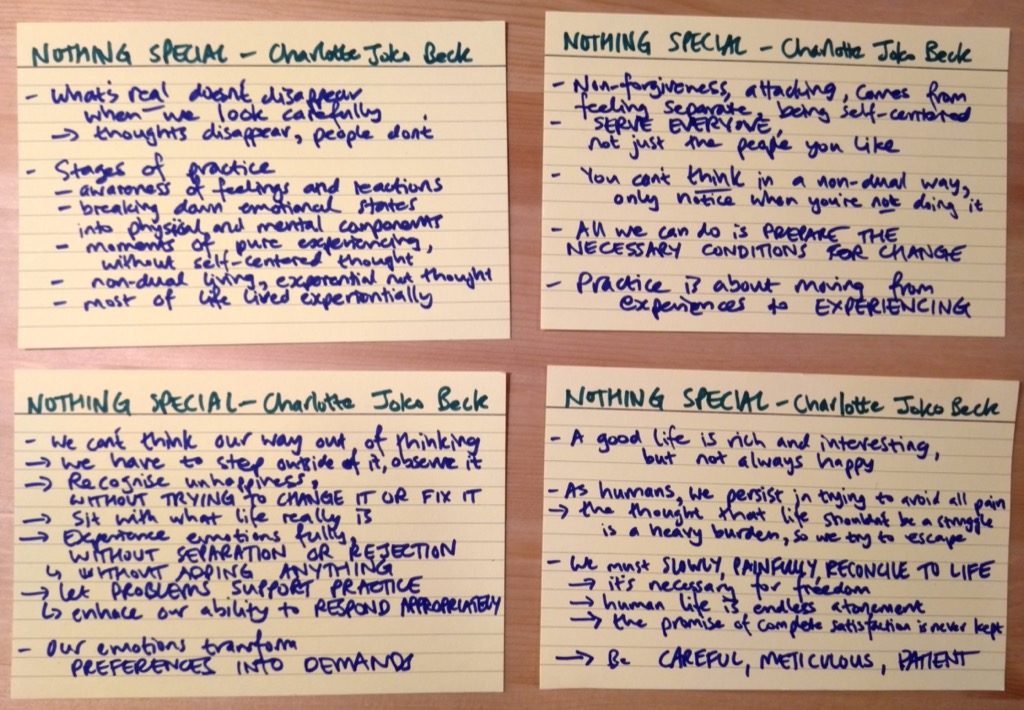 NOTHING SPECIAL - Charlotte Joko Beck
- What's real doesn't disappear
when we look carefully
→ thoughts disappear, people don't
- Stages of practice
- awareness of feelings and reactions
- breaking down emotional states
into physical and mental components
- moments of pure experiencing,
without self-centered thought
- non-dual living, experiential not thought
- most of life lived experientially
NOTHING SPECIAL - Charlotte Joko Beck
- Non-forgiveness, attacking, comes from
feeling separate, being self-centered
- SERVE EVERYONE,
not just the people you like
- You can't think in a non-dual way,
only notice when you're not doing it
- All we can do is PREPARE THE
NECESSARY CONDITIONS FOR CHANGE
- Practice is about moving from
experiences to EXPERIENCING
NOTHING SPECIAL - Charlotte Joko Beck
- We can't think our way out of thinking
→ we have to step outside of it, observe it
→ Recognise unhappiness,
WITHOUT TRYING TO CHANGE IT OR FIX IT
→ Sit with what life really is
→ Experience emotions fully,
WITHOUT SEPARATION OR REJECTION
↳ WITHOUT ADDING ANYTHING
→ Let PROBLEMS SUPPORT PRACTICE
↳ enhace our ability to RESPOND APPROPRIATELY
- Our emotions transform
PREFERENCES INTO DEMANDS
NOTHING SPECIAL - Charlotte Joko Beck
- A good life is rich and interesting,
but not always happy
- As humans, we persist in trying to avoid all pain
→ the thought that life shouldn't be a struggle
is a heavy burden, so we try to escape
- We must SLOWLY, PAINFULLY, RECONCILE TO LIFE
→ it's necessary for freedom
→ human life is endless atonement
→ the promise of complete satisfaction is never kept
→ Be CAREFUL, METICULOUS, PATIENT